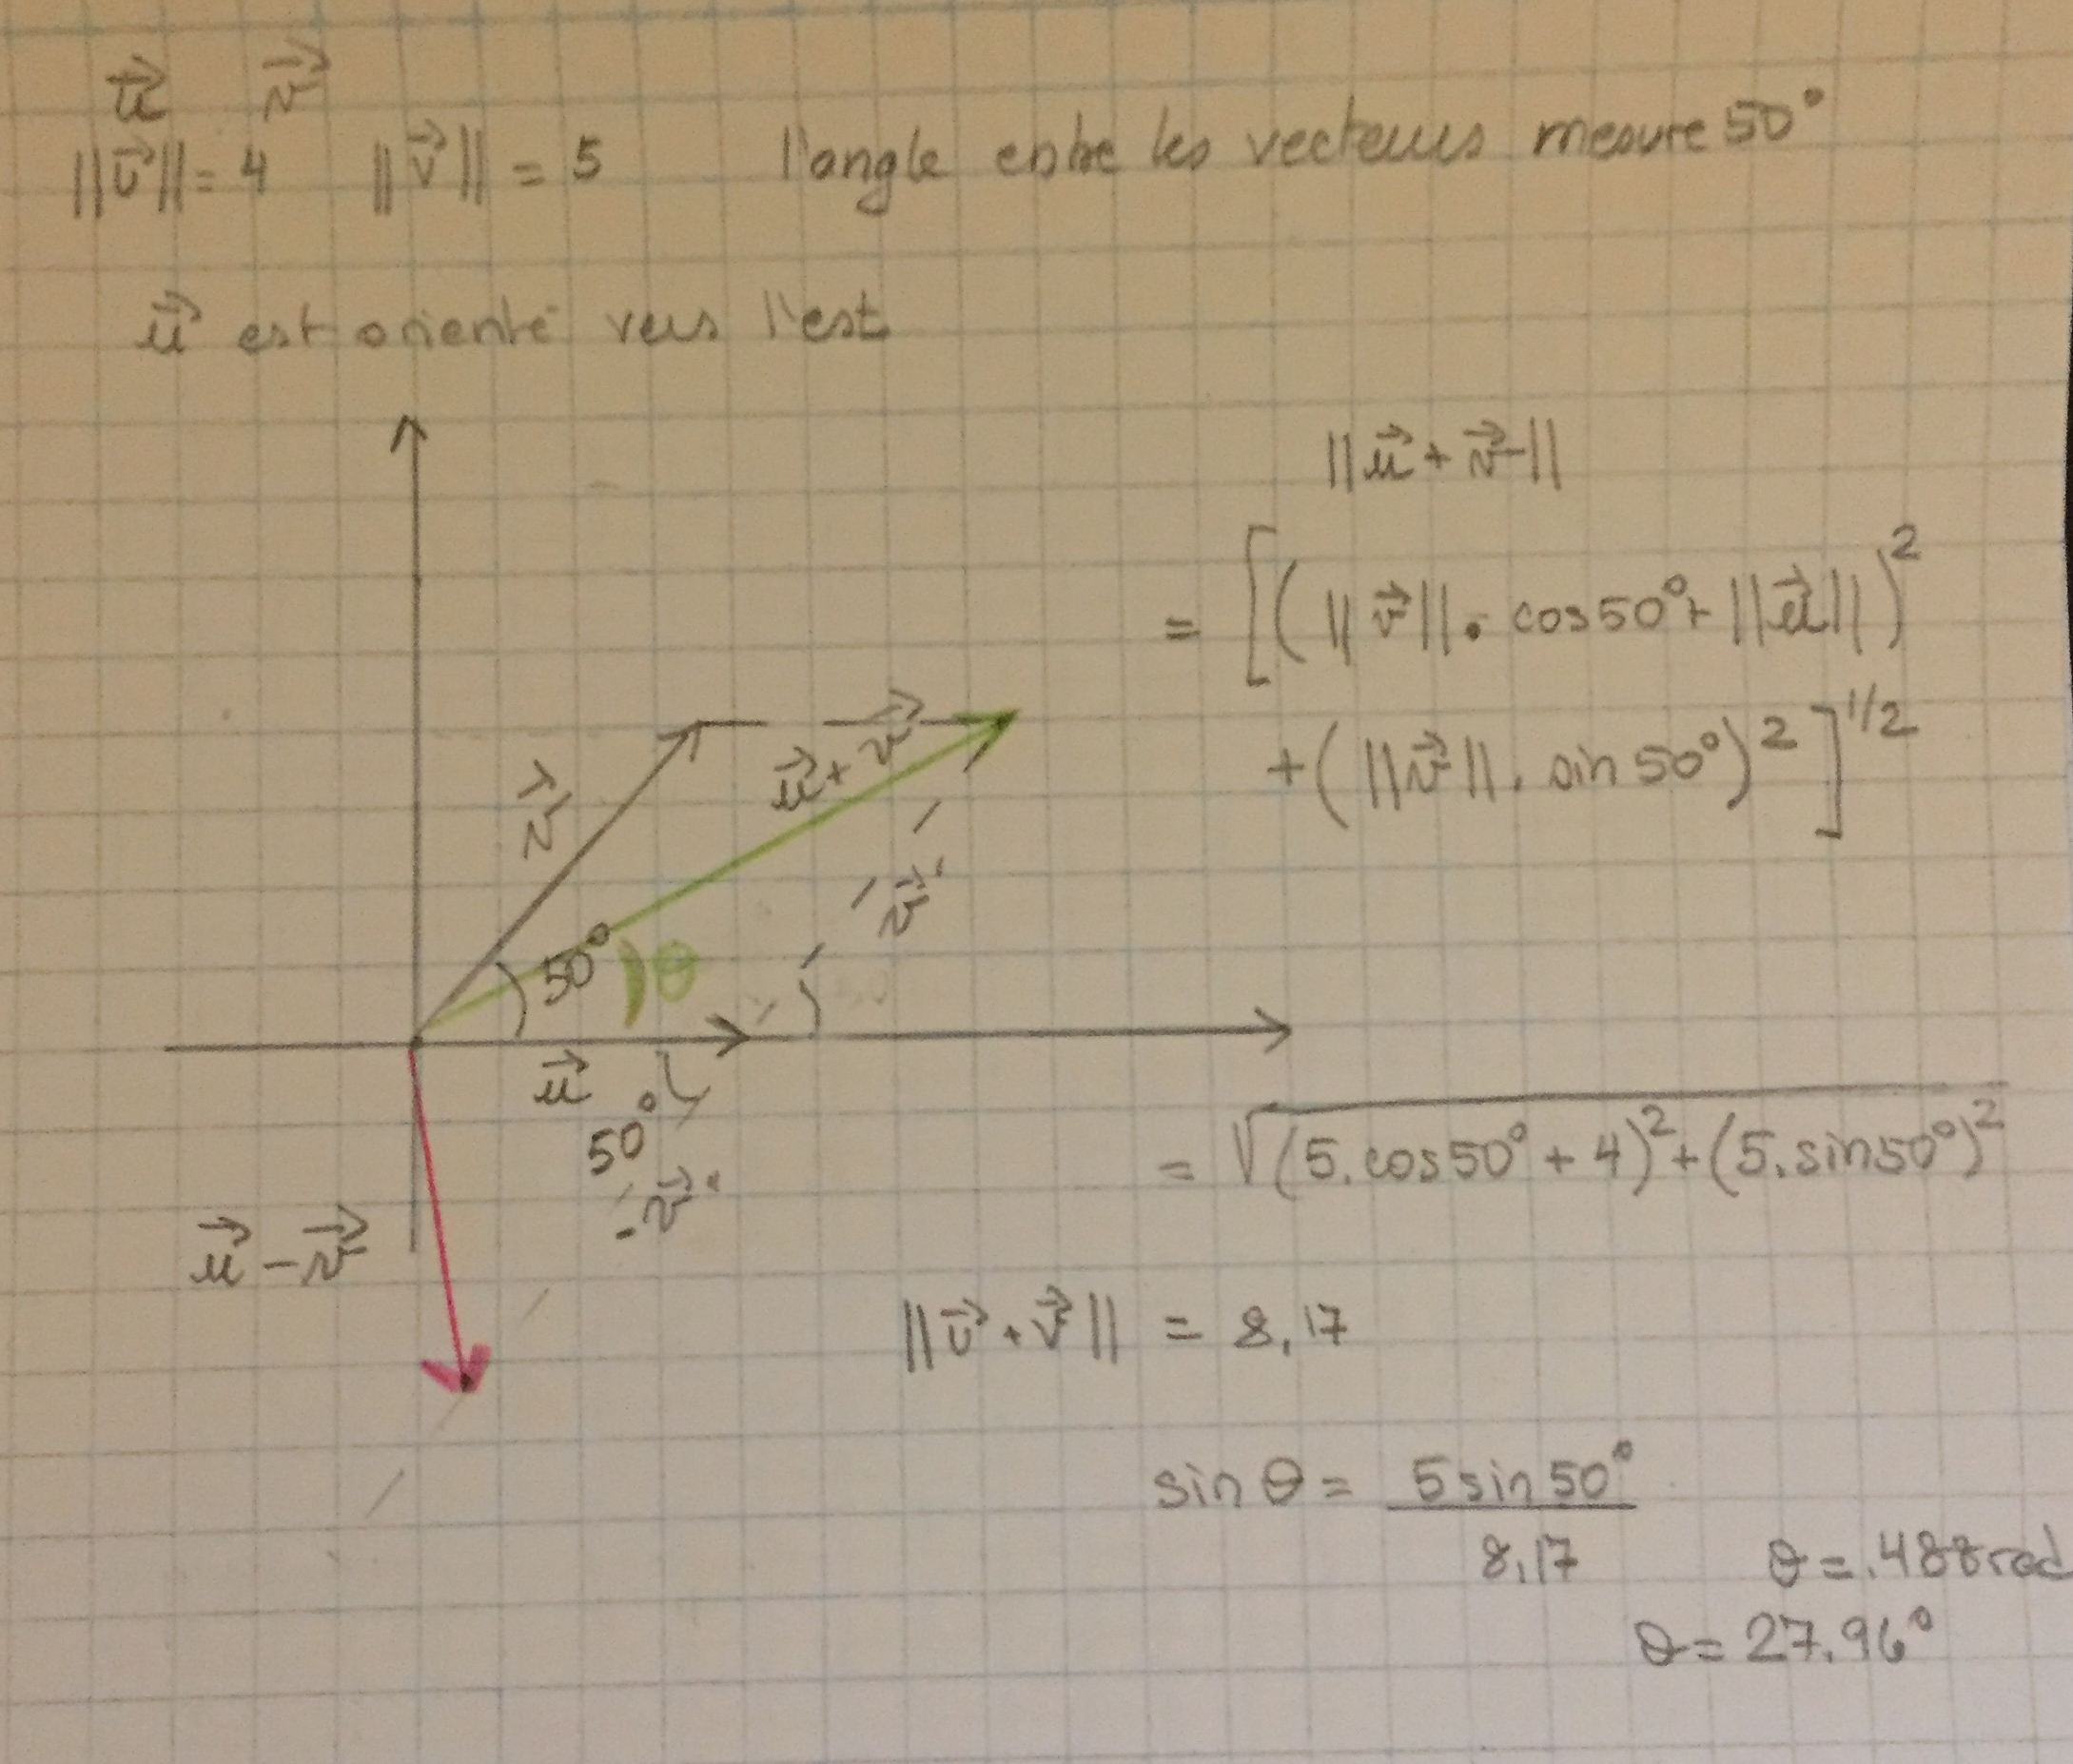 u⃗ v⃗
||u⃗|| = 4 ||v⃗|| = 5 l'angle entre les vecteurs mesure 50°
u⃗ est orienté vers l'est
||u⃗ + v⃗||
= [(||v⃗|| · cos 50° + ||u⃗||)²
+ (||v⃗|| · sin 50°)²]^1/2
v⃗
u⃗ + v⃗
v⃗
50°
θ
u⃗
50°
-v⃗
u⃗ - v⃗
= √(5.cos 50° + 4)² + (5.sin 50°)²
||u⃗ + v⃗|| = 8,17
sin θ = 5 sin 50° / 8,17
θ = .488 rad
θ = 27.96°